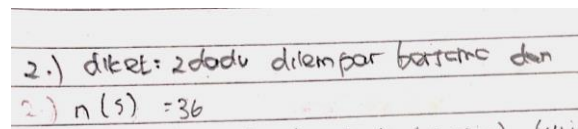 2.) diket: 2 dadu dilempar bersama dan
2.) n(s) = 36